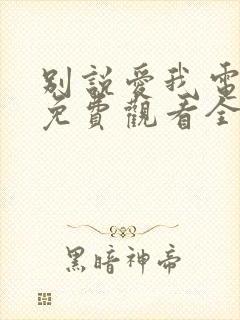 別說愛我電
免費觀看全
黑暗神帝